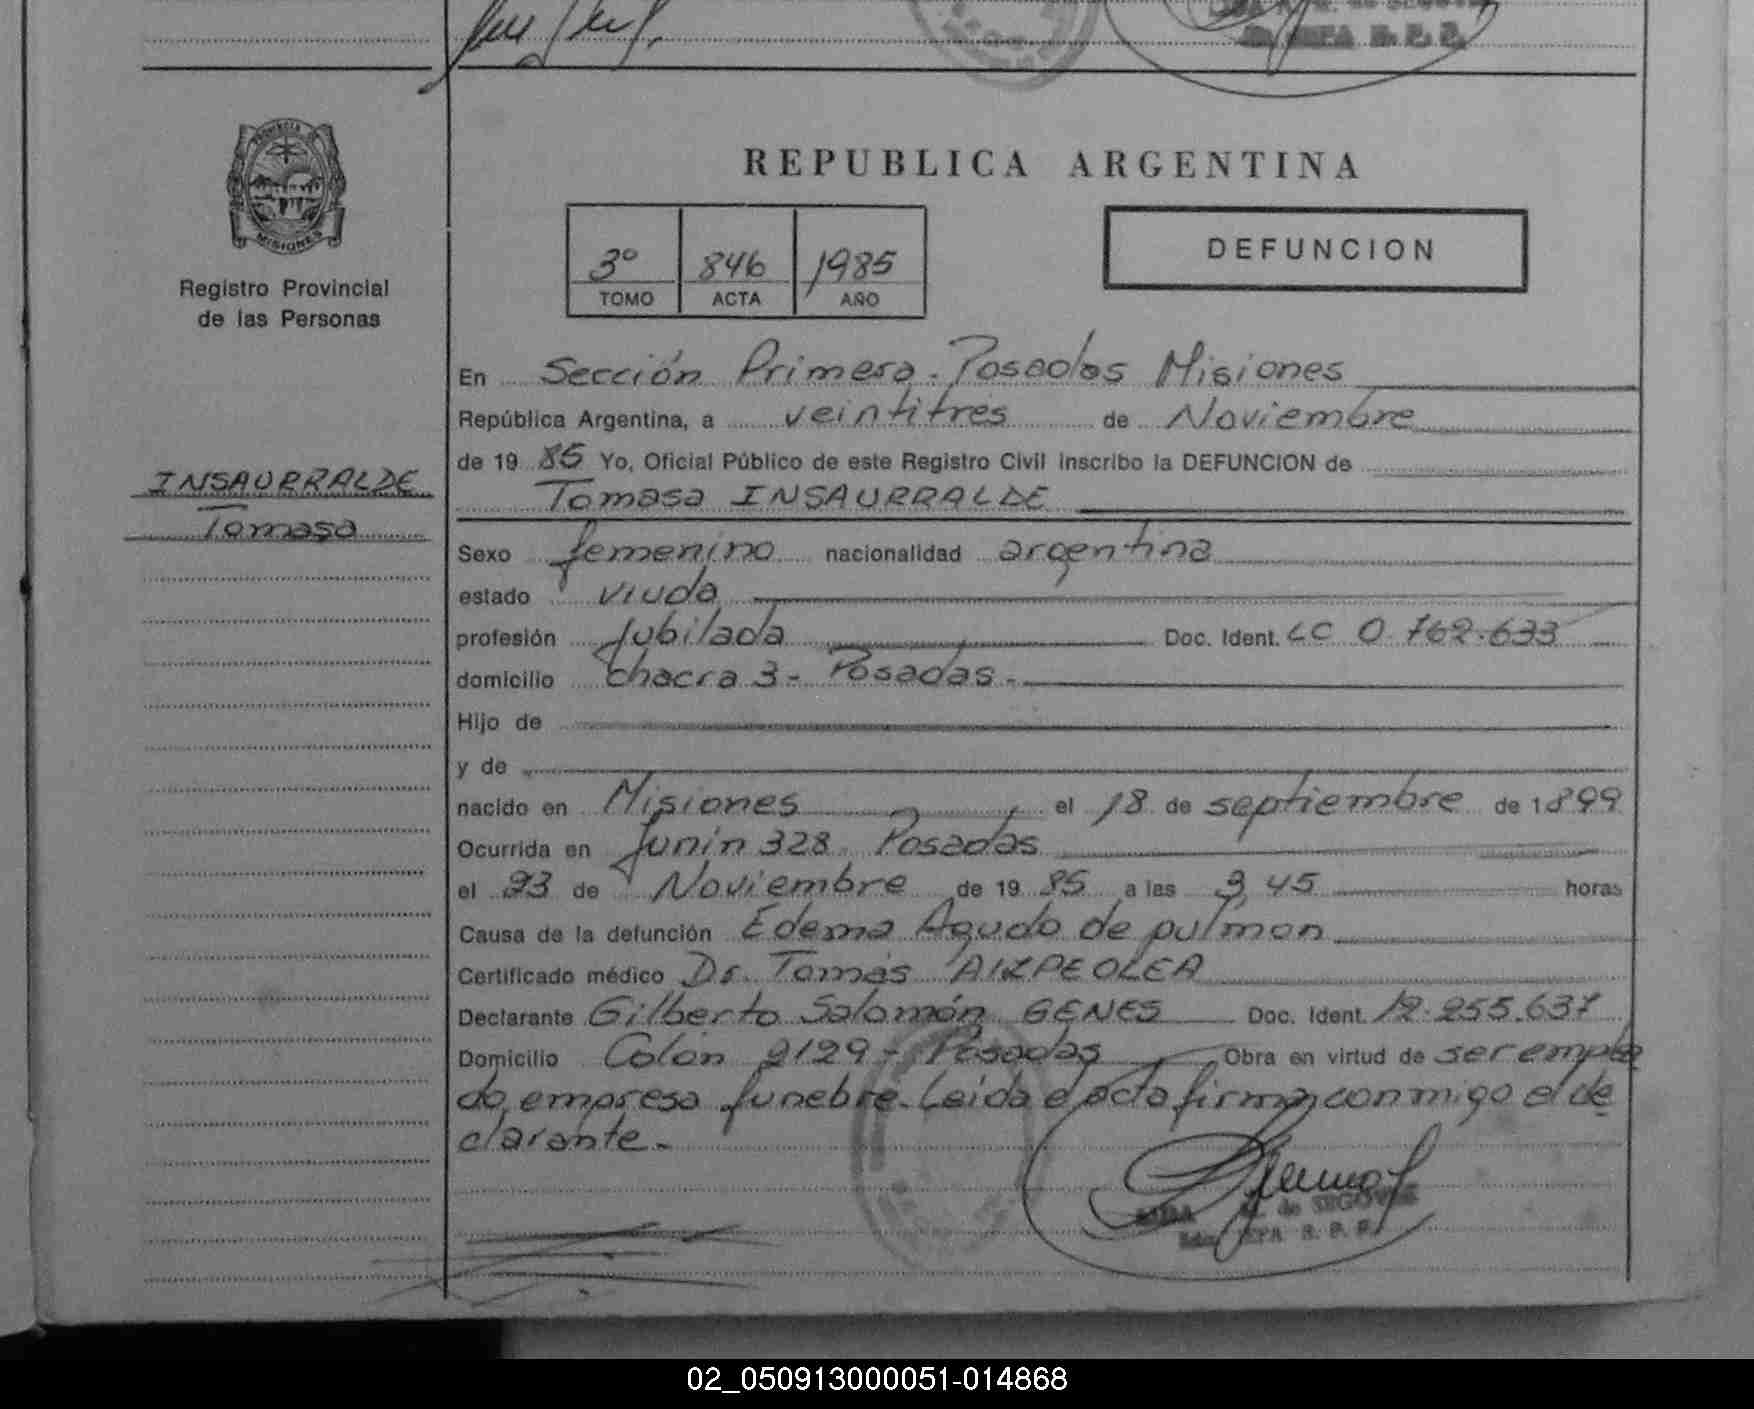 REPUBLICA ARGENTINA
PROVINCIA DE
MISIONES
Registro Provincial
de las Personas
3º 846 1985
TOMO ACTA AÑO
DEFUNCION
INSAURRALDE
Tomasa
En Sección Primera. Posadas Misiones
República Argentina, a veintitres de Noviembre
de 19 85 Yo, Oficial Público de este Registro Civil inscribo la DEFUNCION de
Tomasa INSAURRALDE
Sexo femenino nacionalidad argentina
estado viuda
profesión Jubilada Doc. Ident. LC 0.762.633
domicilio Chacra 3 - Posadas -
Hijo de
y de
nacido en Misiones el 18 de septiembre de 1899
Ocurrida en Junín 328 Posadas
el 23 de Noviembre de 19 85 a las 3,45 horas
Causa de la defunción Edema Agudo de pulmon
Certificado médico Dr. Tomás AIZPEOLEA
Declarante Gilberto Salomón GENES Doc. Ident. 12.255.637
Domicilio Colón 2129 - Posadas Obra en virtud de ser emplea
do empresa funebre. Leida el acta firma conmigo el de
clarante.
de SEGOVIA
R. P. P.
02_050913000051-014868